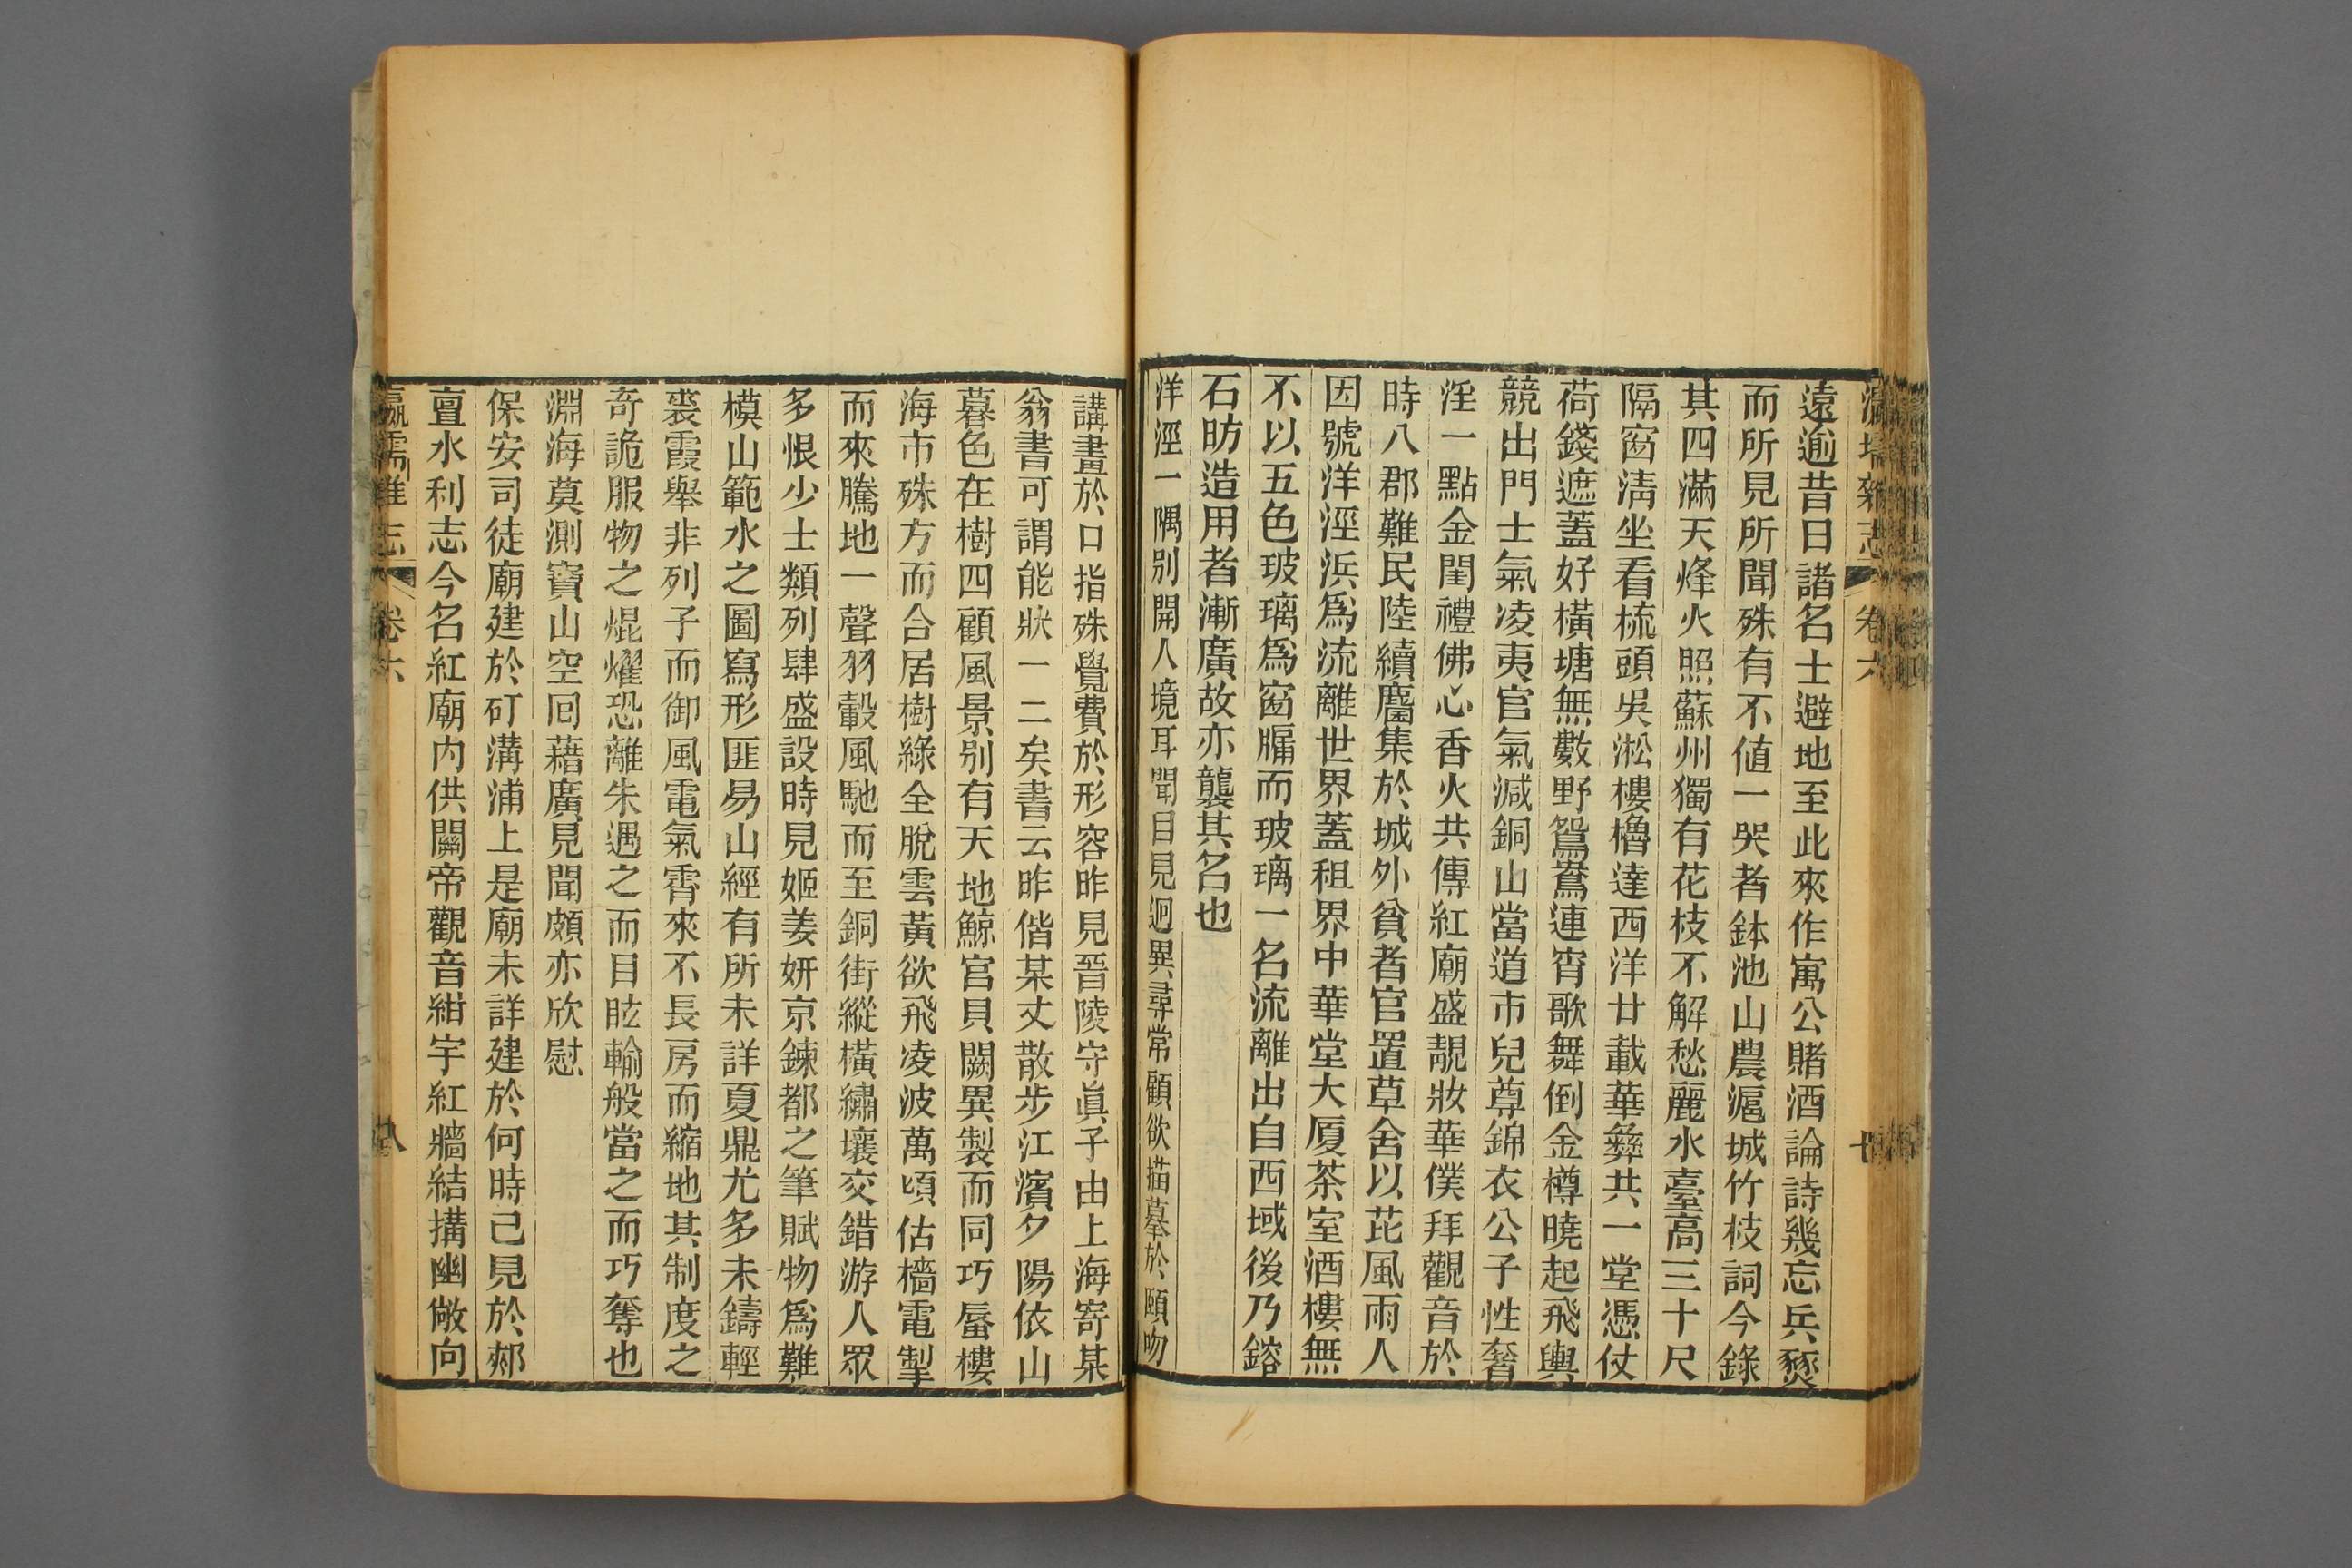 瀛壖雜志 卷六
遠逾昔日諸名士避地至此來作寓公賭酒論詩幾忘兵燹
而所見所聞殊有不値一哭者鉢池山農滬城竹枝詞今錄
其四滿天烽火照蘇州獨有花枝不解愁麗水臺高三十尺
隔窗淸坐看梳頭吳淞樓櫓達西洋廿載華彝共一堂憑仗
荷錢遮蓋好橫塘無數野鴛鴦連宵歌舞倒金樽曉起飛輿
競出門士氣凌夷官氣減銅山當道市兒尊錦衣公子性奢
淫一點金閨禮佛心香火共傳紅廟盛靚妝華僕拜觀音於
時八郡難民陸續麕集於城外貧者官置草舍以芘風雨人
因號洋涇浜爲流離世界蓋租界中華堂大厦茶室酒樓無
不以五色玻璃爲窗牖而玻璃一名流離出自西域後乃鎔
石昉造用者漸廣故亦襲其名也
洋涇一隅別開人境耳聞目見迥異尋常顧欲描摹於頤吻
講畫於口指殊覺費於形容昨見晉陵守眞子由上海寄某
翁書可謂能狀一二矣書云昨偕某丈散步江濱夕陽依山
暮色在樹四顧風景別有天地鯨宮貝闕異製而同巧蜃樓
海市殊方而合居樹綠全脫雲黃欲飛凌波萬頃估檣電掣
而來騰地一聲羽轂風馳而至銅街縱橫繡壤交錯游人眾
多恨少士類列肆盛設時見姬姜妍京鍊都之筆賦物爲難
模山範水之圖寫形匪易山經有所未詳夏鼎尤多未鑄輕
裘霞舉非列子而御風電氣霄來不長房而縮地其制度之
奇詭服物之焜燿恐離朱遇之而目眩輸般當之而巧奪也
淵海莫測寶山空囘藉廣見聞頗亦欣慰
保安司徒廟建於矴溝浦上是廟未詳建於何時已見於郟
亶水利志今名紅廟內供關帝觀音紺宇紅牆結搆幽敞向
瀛壖雜志 卷六 八